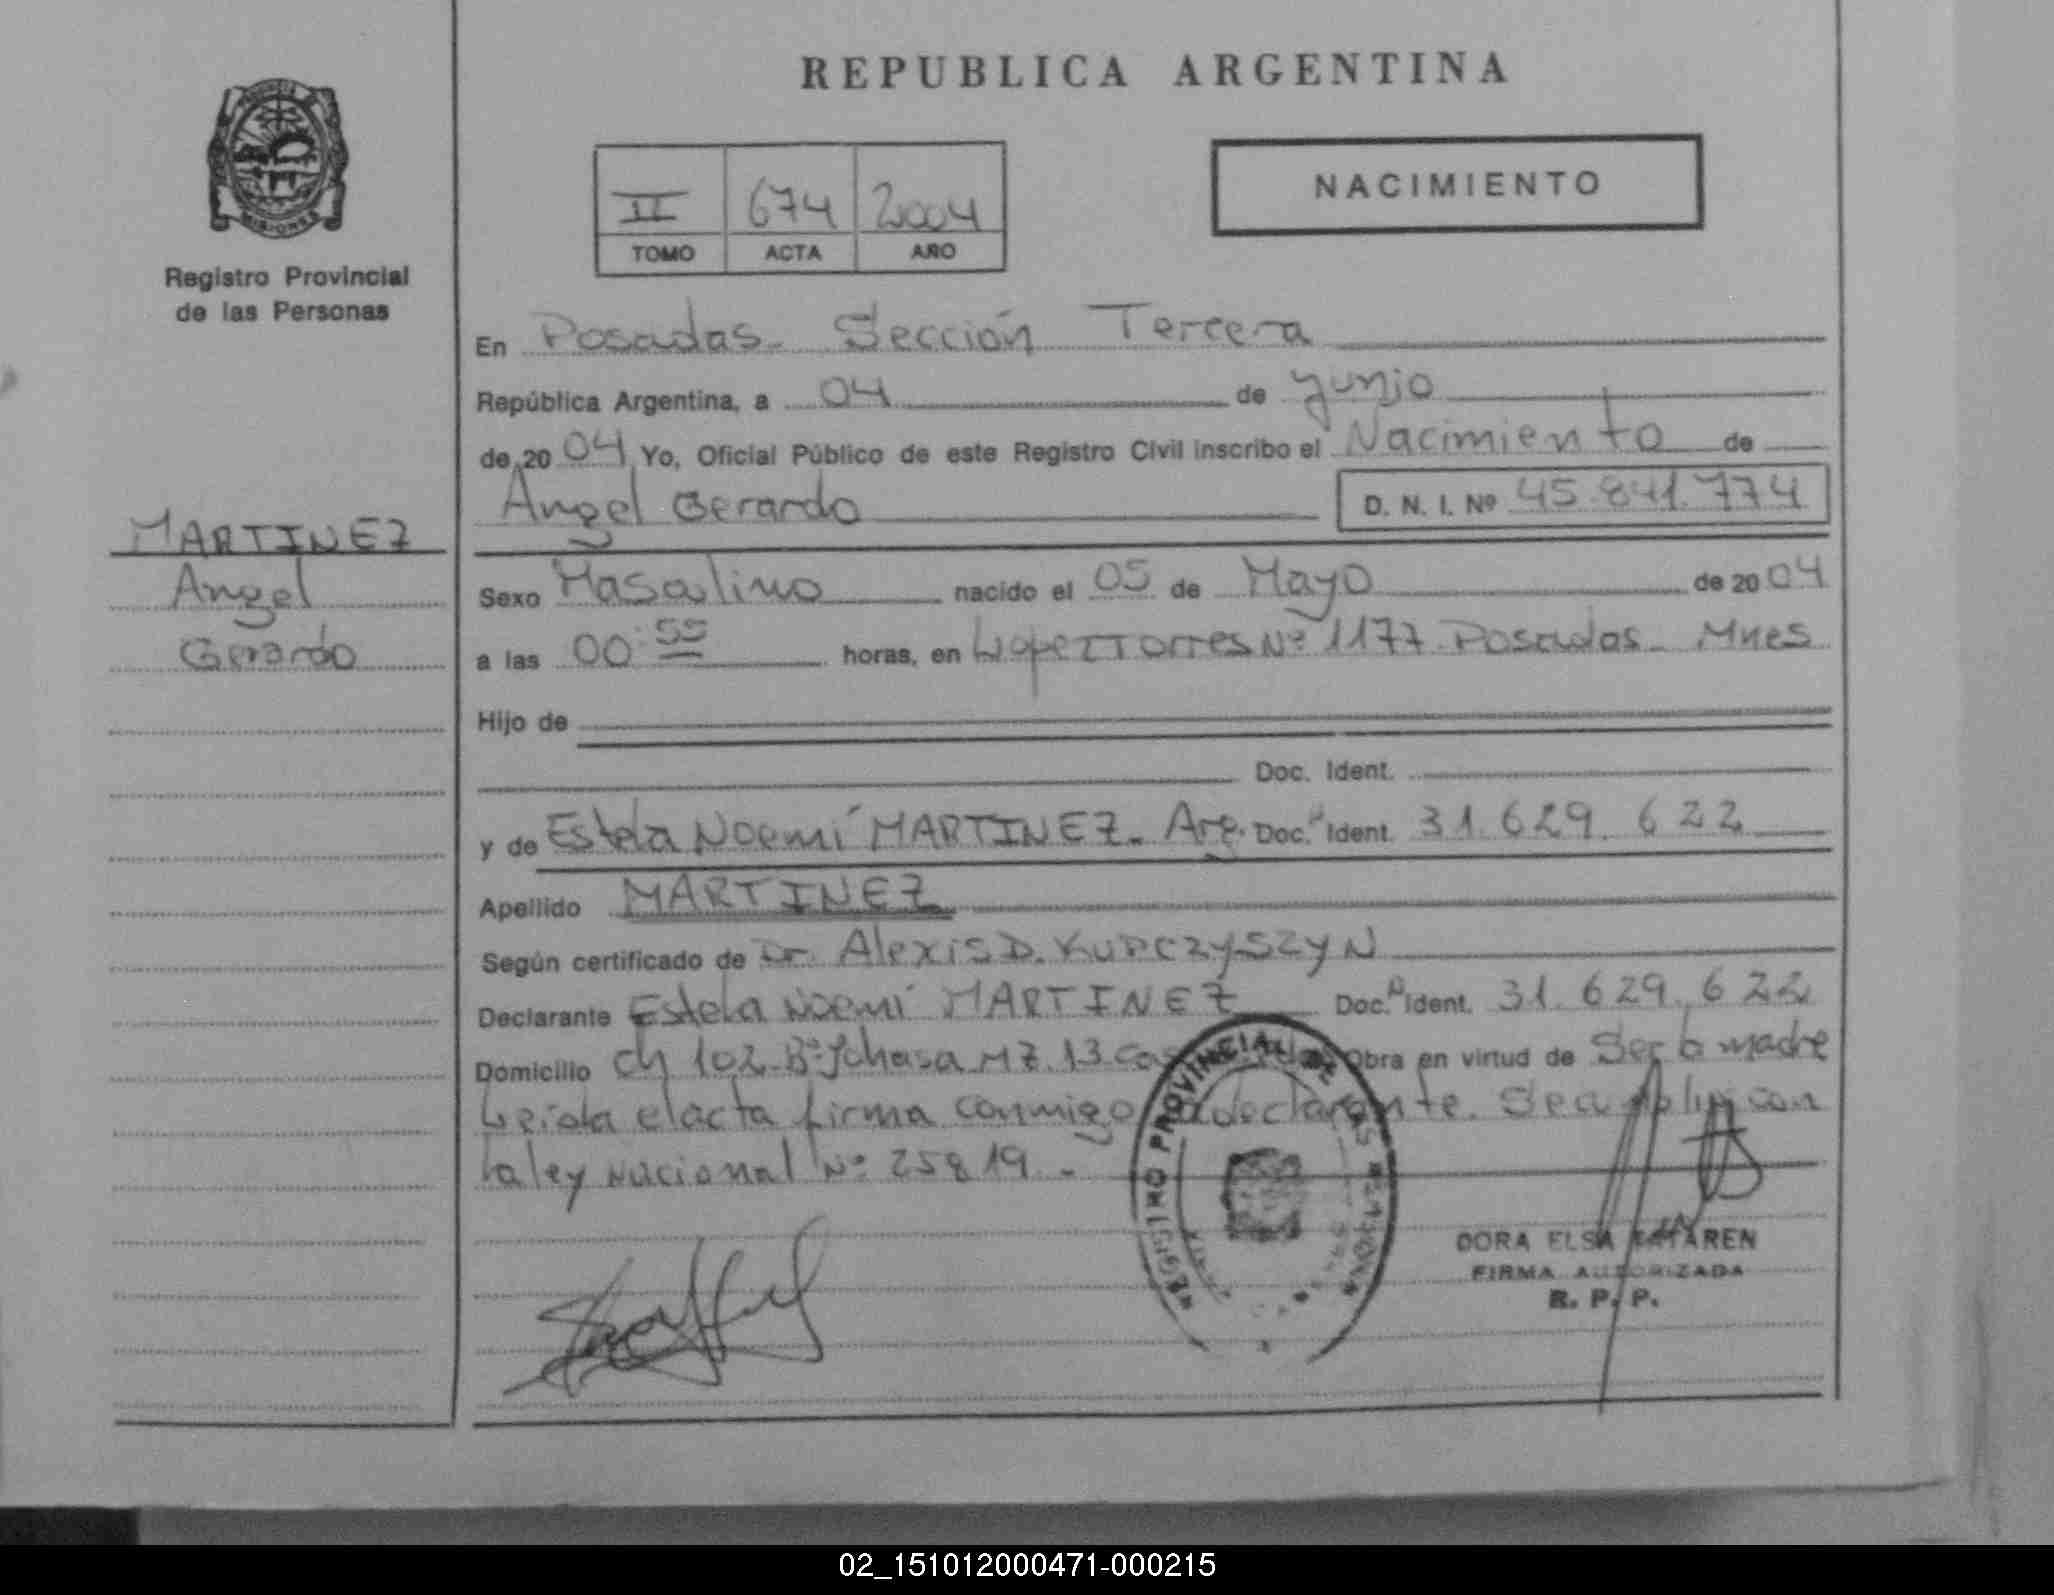 REPUBLICA ARGENTINA
PROVINCIA DE
MISIONES
Registro Provincial
de las Personas
II 674 2004
TOMO ACTA AÑO
NACIMIENTO
En Posadas. Sección Tercera
República Argentina, a 04 de Junio
de 20 04 Yo, Oficial Público de este Registro Civil inscribo el Nacimiento de
Angel Gerardo D. N. I. Nº 45.841.774
MARTINEZ
Angel
Gerardo
Sexo Masculino nacido el 05 de Mayo de 20 04
a las 00:55 horas, en Lopez Torres Nº 1177 Posadas - Mnes
Hijo de
Doc. Ident.
y de Estela Noemí MARTINEZ. Arg. Doc. Ident. 31.629.622
Apellido MARTINEZ
Según certificado de Dr. Alexis D. KUPCZYSZYN
Declarante Estela Noemí MARTINEZ Doc. Ident. 31.629.622
Domicilio Ch 102 Bº Yohasa MZ. 13 Obra en virtud de Ser la madre
Leida el acta firma conmigo la declarante. Se aplicó con
la ley Nacional Nº 25819.-
REGISTRO PROVINCIAL DE LAS PERSONAS
DORA ELSA
FIRMA AUTORIZADA
R. P. P.
02_151012000471-000215